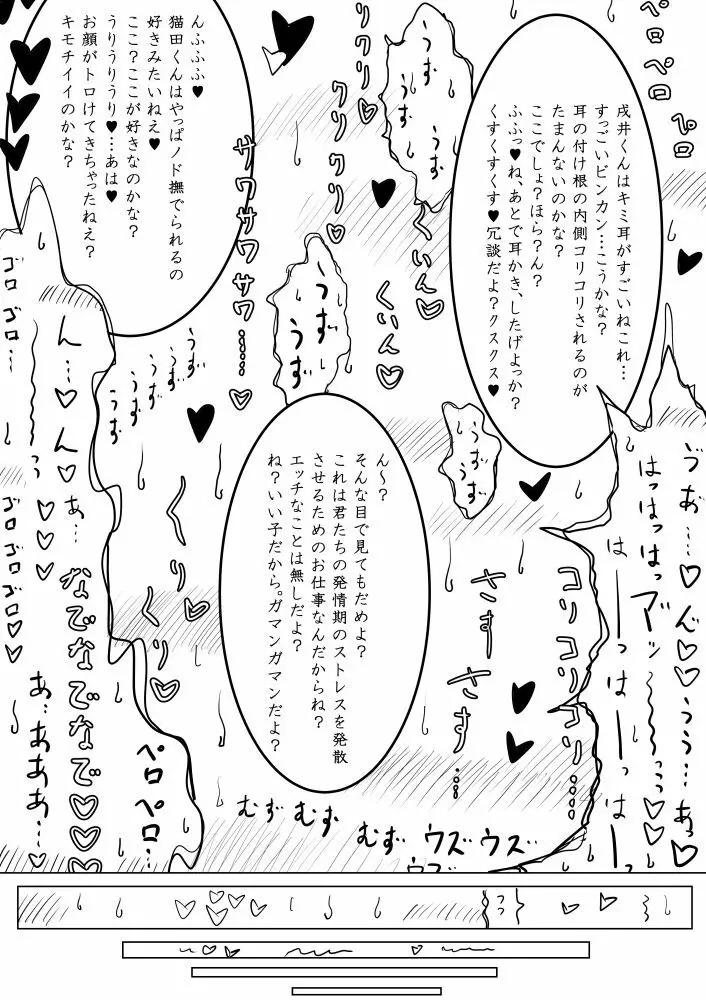 戌井くんはキミ耳がすごいねこれ…
すっごいビンカン…こうかな？
耳の付け根の内側コリコリされるのが
たまんないのかな？
ここでしょ？ほら？ん？
ふふっ♥ね、あとで耳かき、したげよっか？
くすくすくす♥冗談だよ？クスクス♥
んふふふ♥
猫田くんはやっぱノド撫でられるの
好きみたいねえ♥
ここ？ここが好きなのかな？
うりうりうり♥…あは♥
お顔がトロけてきちゃったねえ？
キモチイイのかな？
ん～？
そんな目で見てもだめよ？
これは君たちの発情期のストレスを発散
させるためのお仕事なんだからね？
エッチなことは無しだよ？
ね？いい子だから。ガマンガマンだよ？
ペロペロ
ペロ
うず
うず
クリクリ♡
クリクリ♡
くいん♡
くいん♡
サワサワサワサワ……♡
うず
うず
うず
うず
うず
うず
うずうず
ゴロゴロゴロ…
ん…♡ん♡
あ…
ゴロゴロゴロゴロ♡♡
なでなでなでなで♡♡♡
あ…あああ…
くりくり♡
ペロペロ…
さすさす……
コリコリコリコリ……
はっはっはっ
はーっはーっはーっ
うぅ…あっ♡
むずむず
むず
ウズウズ
ウズ